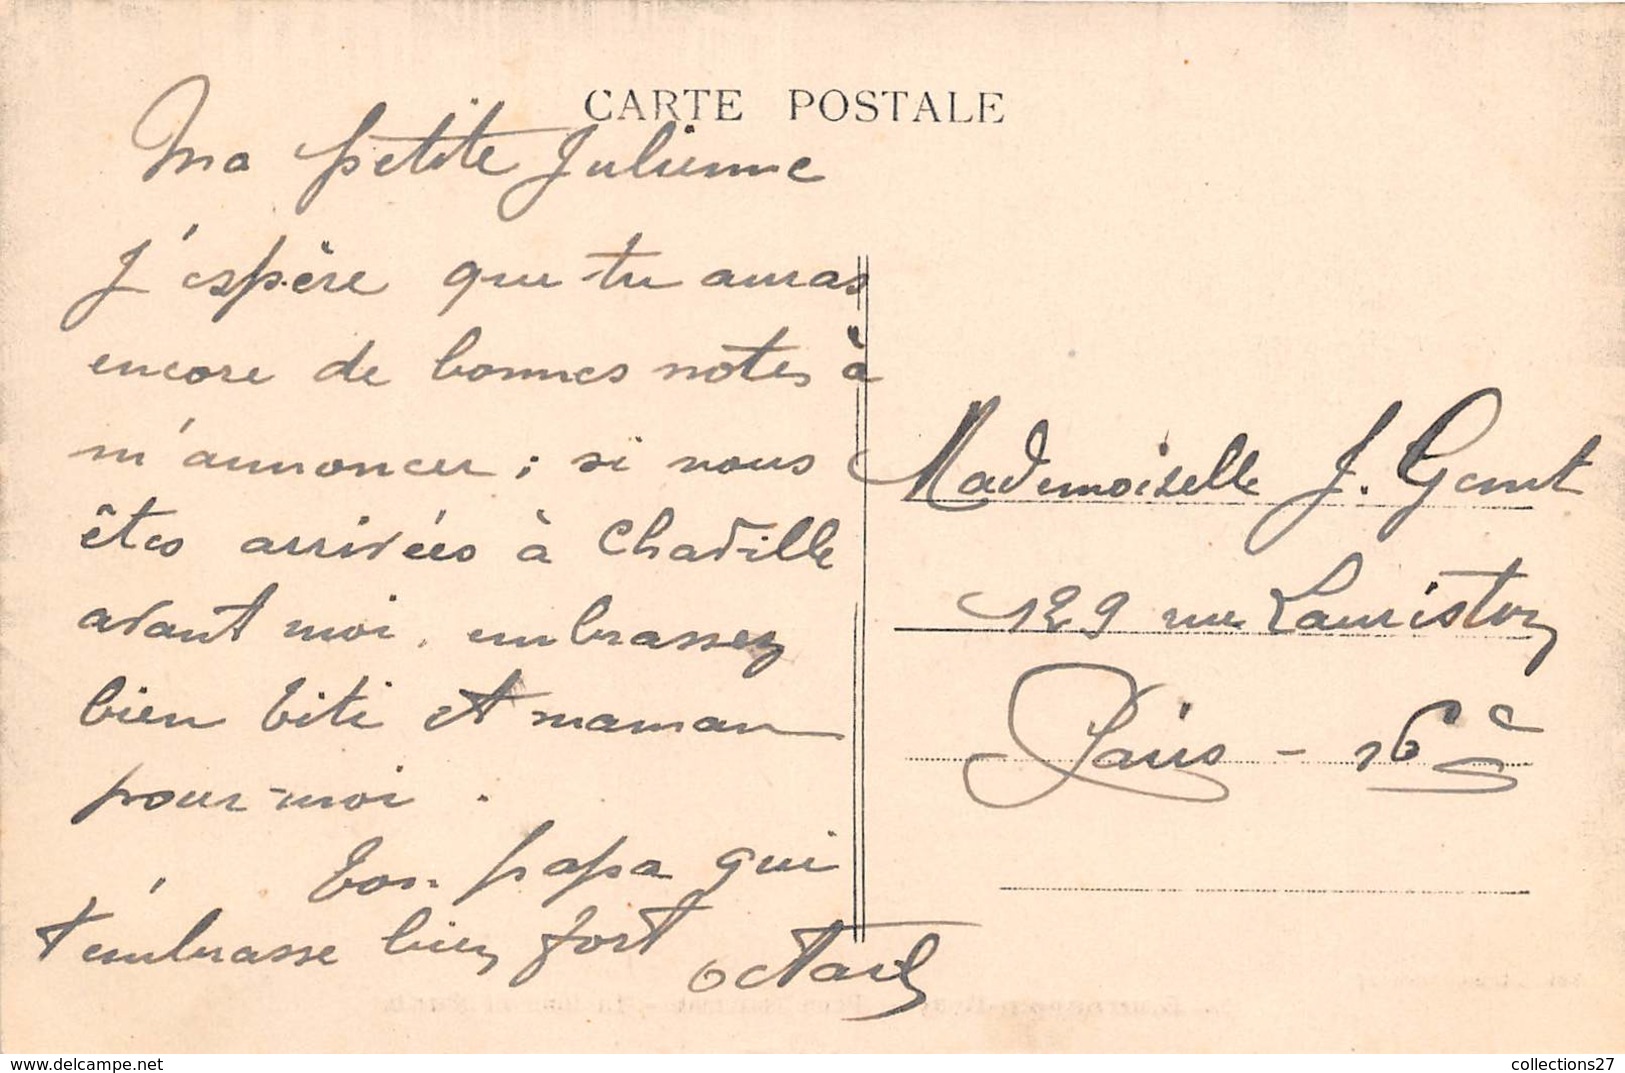 CARTE POSTALE
Ma petite Julienne
J'espère que tu auras
encore de bonnes notes à
m'annoncer ; si nous
êtes arrivées à Chaville
avant moi, embrassez
bien titi et maman
pour moi.
Ton papa qui
t'embrasse bien fort
Mademoiselle J.
129 rue Lauriston
Paris - 16e
delcampe.net
collections27